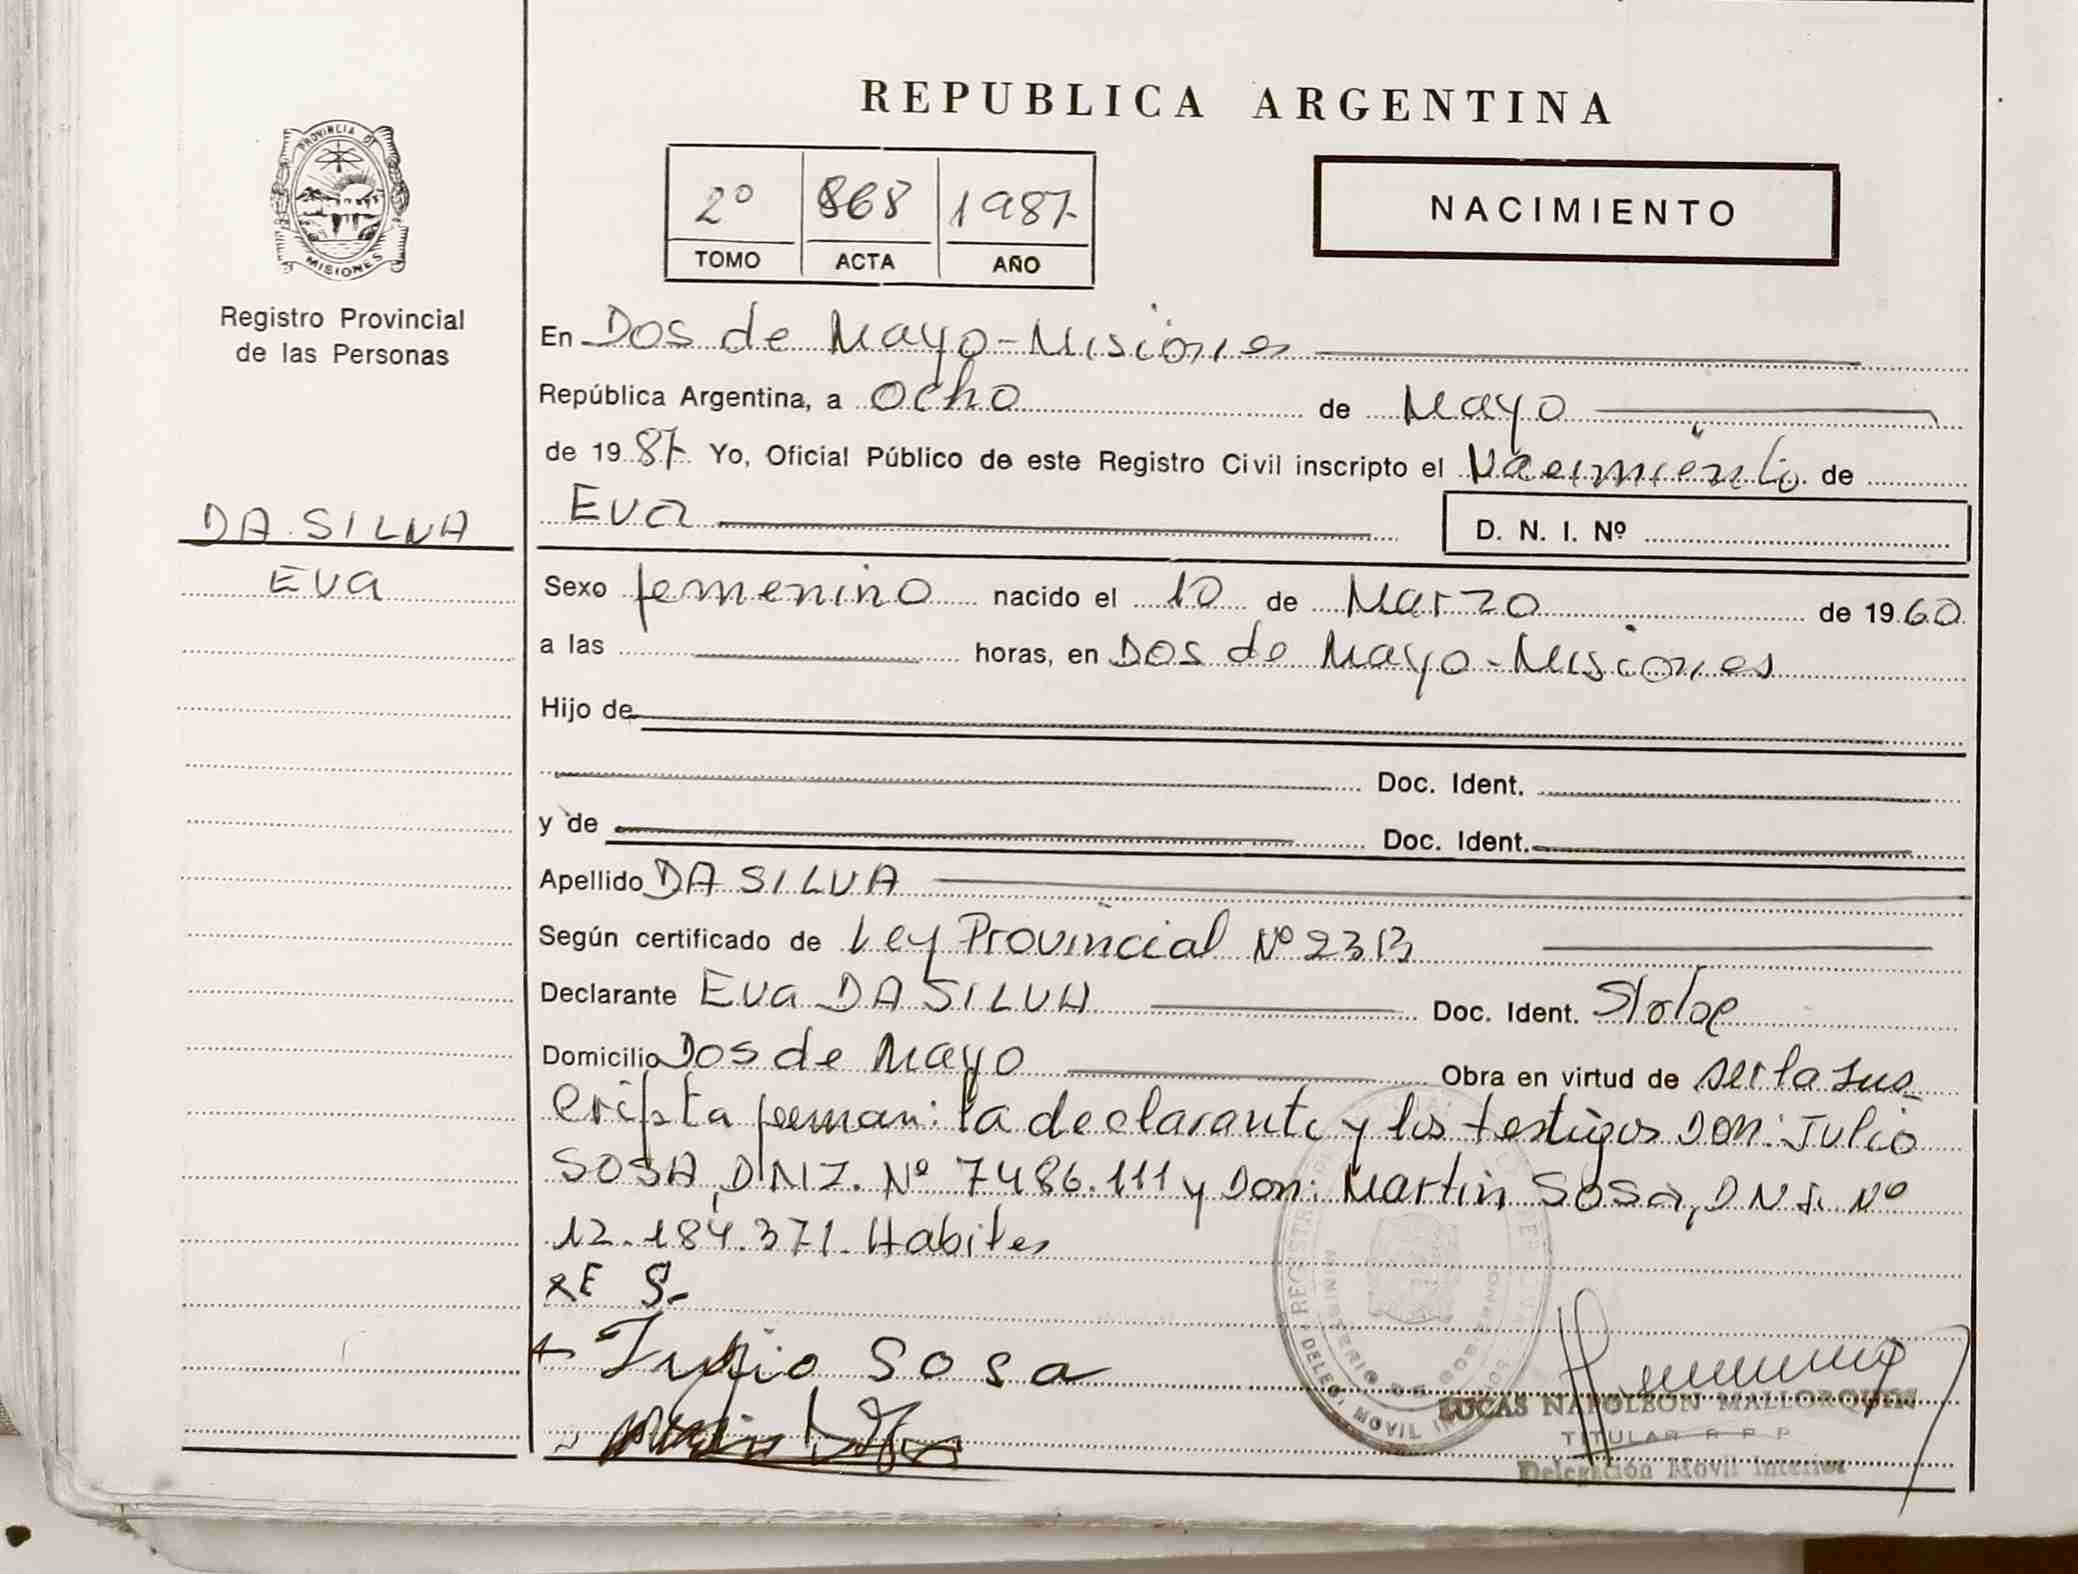 REPUBLICA ARGENTINA
PROVINCIA DE
MISIONES
Registro Provincial
de las Personas
2º 868 1987
TOMO ACTA AÑO
NACIMIENTO
En Dos de Mayo-Misiones
República Argentina, a ocho de Mayo
de 1987 Yo, Oficial Público de este Registro Civil inscripto el Nacimiento de
Eva D. N. I. Nº
DA SILVA
Eva
Sexo femenino nacido el 10 de Marzo de 1960
a las horas, en Dos de Mayo-Misiones
Hijo de
Doc. Ident.
y de Doc. Ident.
Apellido DA SILVA
Según certificado de Ley Provincial Nº 2313
Declarante Eva DA SILVA Doc. Ident.
Domicilio Dos de Mayo Obra en virtud de ser la sus
cripta firman: la declarante y los testigos Don: Julio
SOSA, DNI. Nº 7486.111 y Don: Martin SOSA, D N I. Nº
12.184.371. Habiles
Julio Sosa
LUCAS NAPOLEON MALLORQUIN
TITULAR R P P
Delegación Móvil Interior